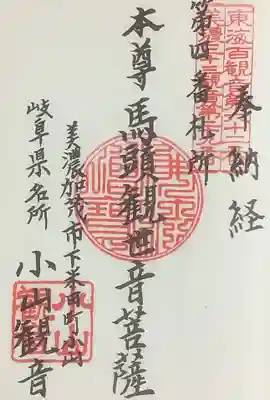 奉納経
東海百観音第
美濃三十三観音第
第四番札所
本尊馬頭観世音菩薩
美濃加茂市下米田町小山
岐阜県名所
小山観音